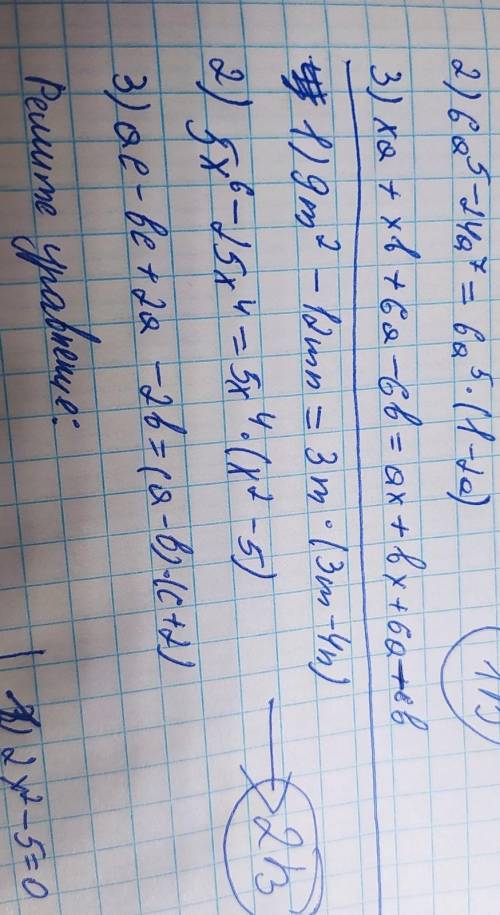 2) 6a⁵ - 24a⁷ = 6a⁵ · (1 - 2a)
3) xa + xb + 6a - 6b = ax + bx + 6a - 6b
1) 9m² - 12mn = 3m · (3m - 4n)
2) 5x⁶ - 25x⁴ = 5x⁴ · (x² - 5)
2/3
3) ac - bc + 2a - 2b = (a - b) · (c + 2)
Решите уравнение:
2x² - 5 = 0